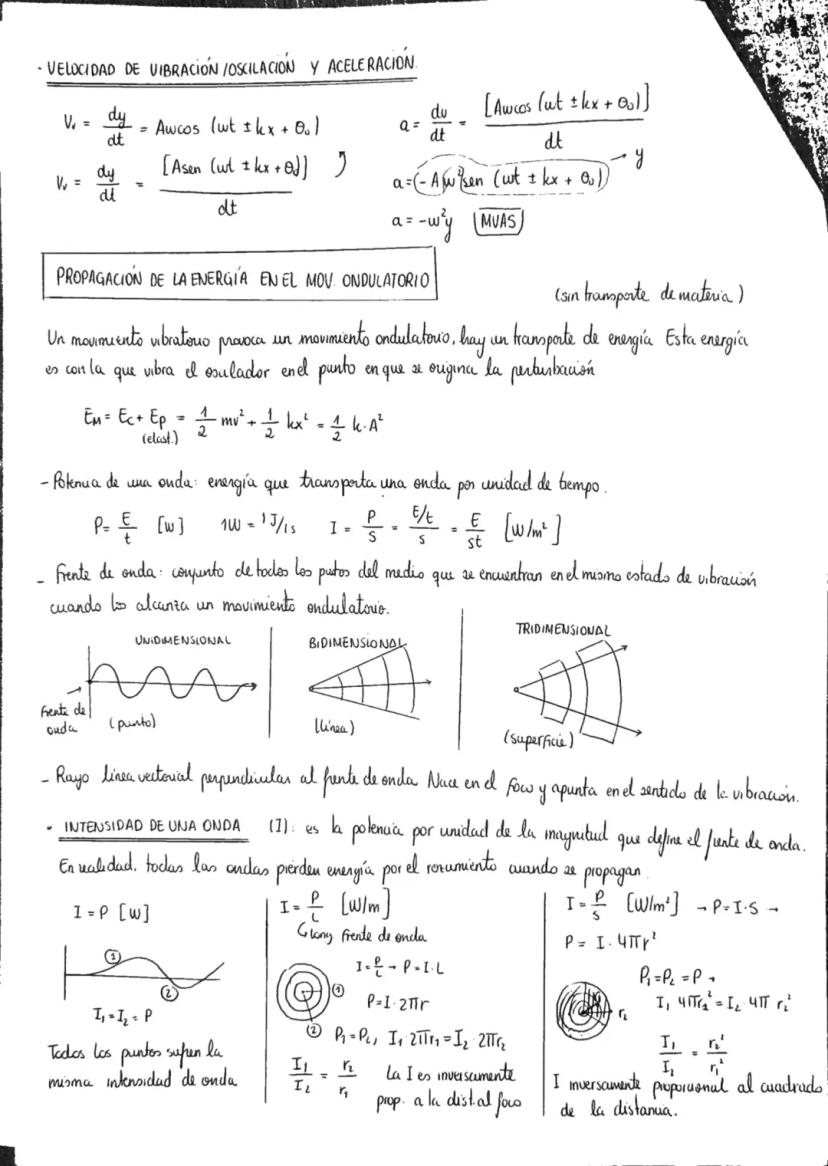 · VELOCIDAD DE VIBRACIÓN/OSCILACIÓN Y ACELERACIÓN.
Vᵥ = dy/dt = Aωcos (ωt ± kx + θ₀)
Vᵥ = dy/dt = [Asen (ωt ± kx + θ₀)]/dt
a = dv/dt = [Aωcos (ωt ± kx + θ₀)]/dt
a = (-Aω²sen (ωt ± kx + θ₀)) → y
a = -ω²y MVAS
PROPAGACIÓN DE LA ENERGÍA EN EL MOV. ONDULATORIO
(sin transporte de materia)
Un movimiento vibratorio provoca un movimiento ondulatorio, hay un transporte de energía Esta energía
es con la que vibra el oscilador en el punto en que se origina la perturbación
EM = Ec + Ep = 1/2 mv² + 1/2 kx² = 1/2 k·A²
(elast.)
- Potencia de una onda: energía que transporta una onda por unidad de tiempo.
P = E/t [W] 1W = 1J/1s I = P/S = E/t/s = E/st [W/m²]
- Frente de onda: conjunto de todos los putos del medio que se encuentran en el mismo estado de vibración
cuando los alcanza un movimiento ondulatorio.
UNIDIMENSIONAL
Frente de
onda
(punto)
BIDIMENSIONAL
(línea)
TRIDIMENSIONAL
(superficie)
- Rayo línea vectorial perpendicular al frente de onda Nace en el foco y apunta en el sentido de la vibración.
· INTENSIDAD DE UNA ONDA (I): es la potencia por unidad de la magnitud que define el frente de onda.
En realidad, todas las ondas pierden energía por el rozamiento cuando se propagan
I = P [W]
① ②
I₁ = I₂ = P
Todos los puntos sufren la
misma intensidad de onda
I = P/L [W/m]
↳ long frente de onda
I = P/L → P = I·L
①
P = I·2πr
② P₁ = P₂, I₁ 2πr₁ = I₂·2πr₂
I₁/I₂ = r₂/r₁
La I es inversamente
prop. a la dist. al foco
I = P/S [W/m²] → P = I·S →
P = I·4πr²
P₁ = P₂ = P →
r₂ I₁ 4πr₁² = I₂ 4π r₂²
I₁/I₂ = r₂²/r₁²
I inversamente proporcional al cuadrado
de la distancia.